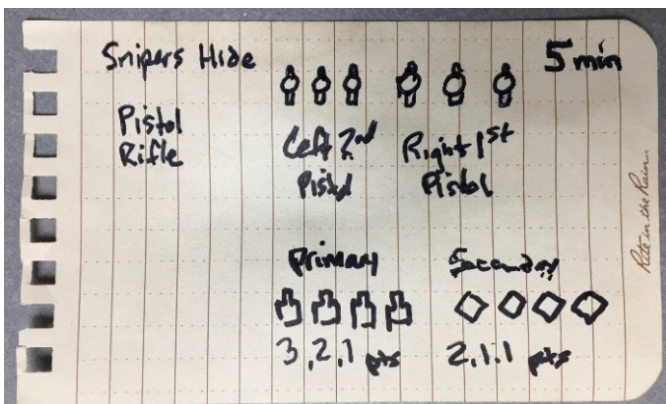 Snipers Hide
5 min
Pistol
Rifle
Left 2nd
Pistol
Right 1st
Pistol
Primary
Secondary
3, 2, 1 pts
2, 1, 1 pts
Rite in the Rain